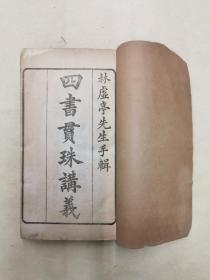 林虛亭先生手輯
四書貫珠講義